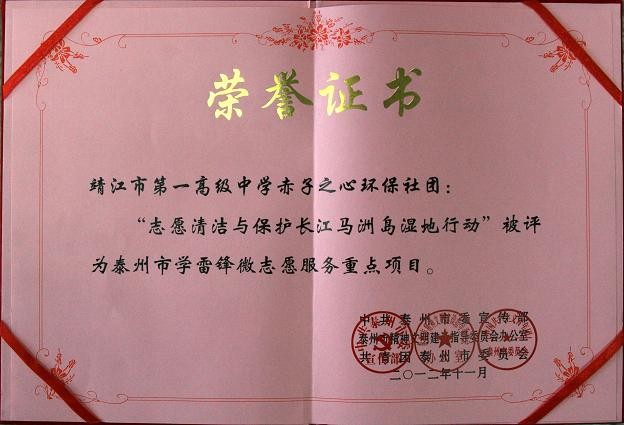 荣誉证书
靖江市第一高级中学赤子之心环保社团：
“志愿清洁与保护长江马洲岛湿地行动”被评
为泰州市学雷锋微志愿服务重点项目。
中共泰州市委宣传部
泰州市精神文明建设指导委员会办公室
共青团泰州市委员会
二〇一二年十一月